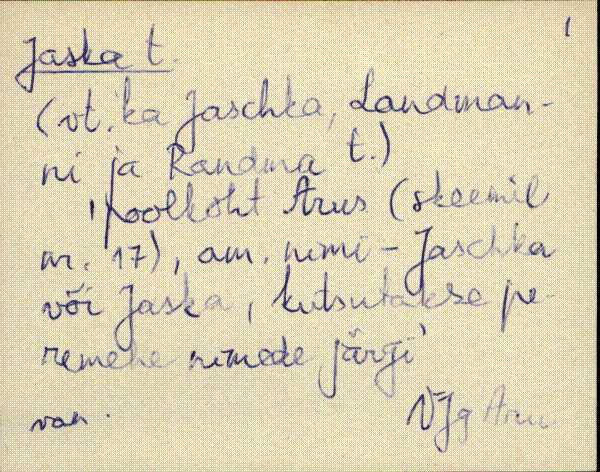 1
Jaska t.
(vt. ka Jaschka, Landman-
ni ja Randma t.)
'poolkoht Arus (skeemil
nr. 17), am. nimi - Jaschka
või Jaska, kutsutakse pe-
remehe nimede järgi'
van. VJg Aru